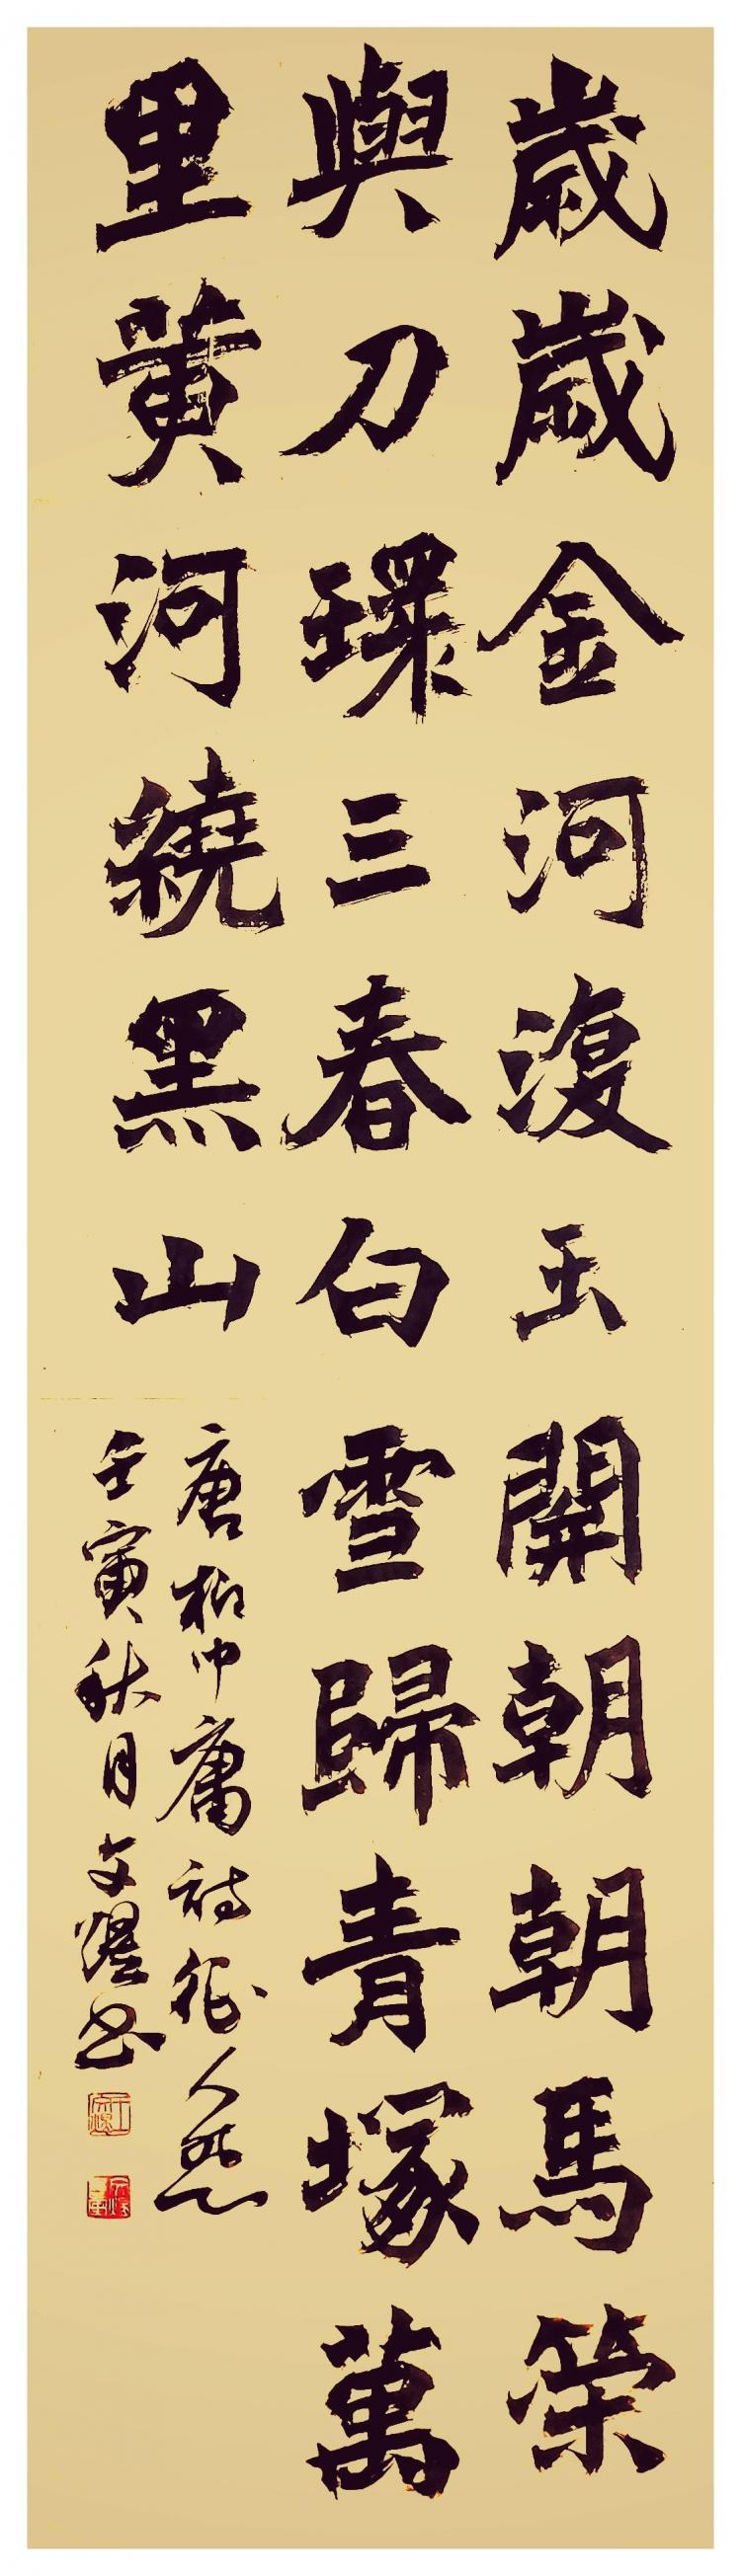 歲歲金河復玉開朝朝馬策
與刀環三春白雪歸青塚萬
里黃河繞黑山
唐柳中庸詩征人怨
壬寅秋月文耀书